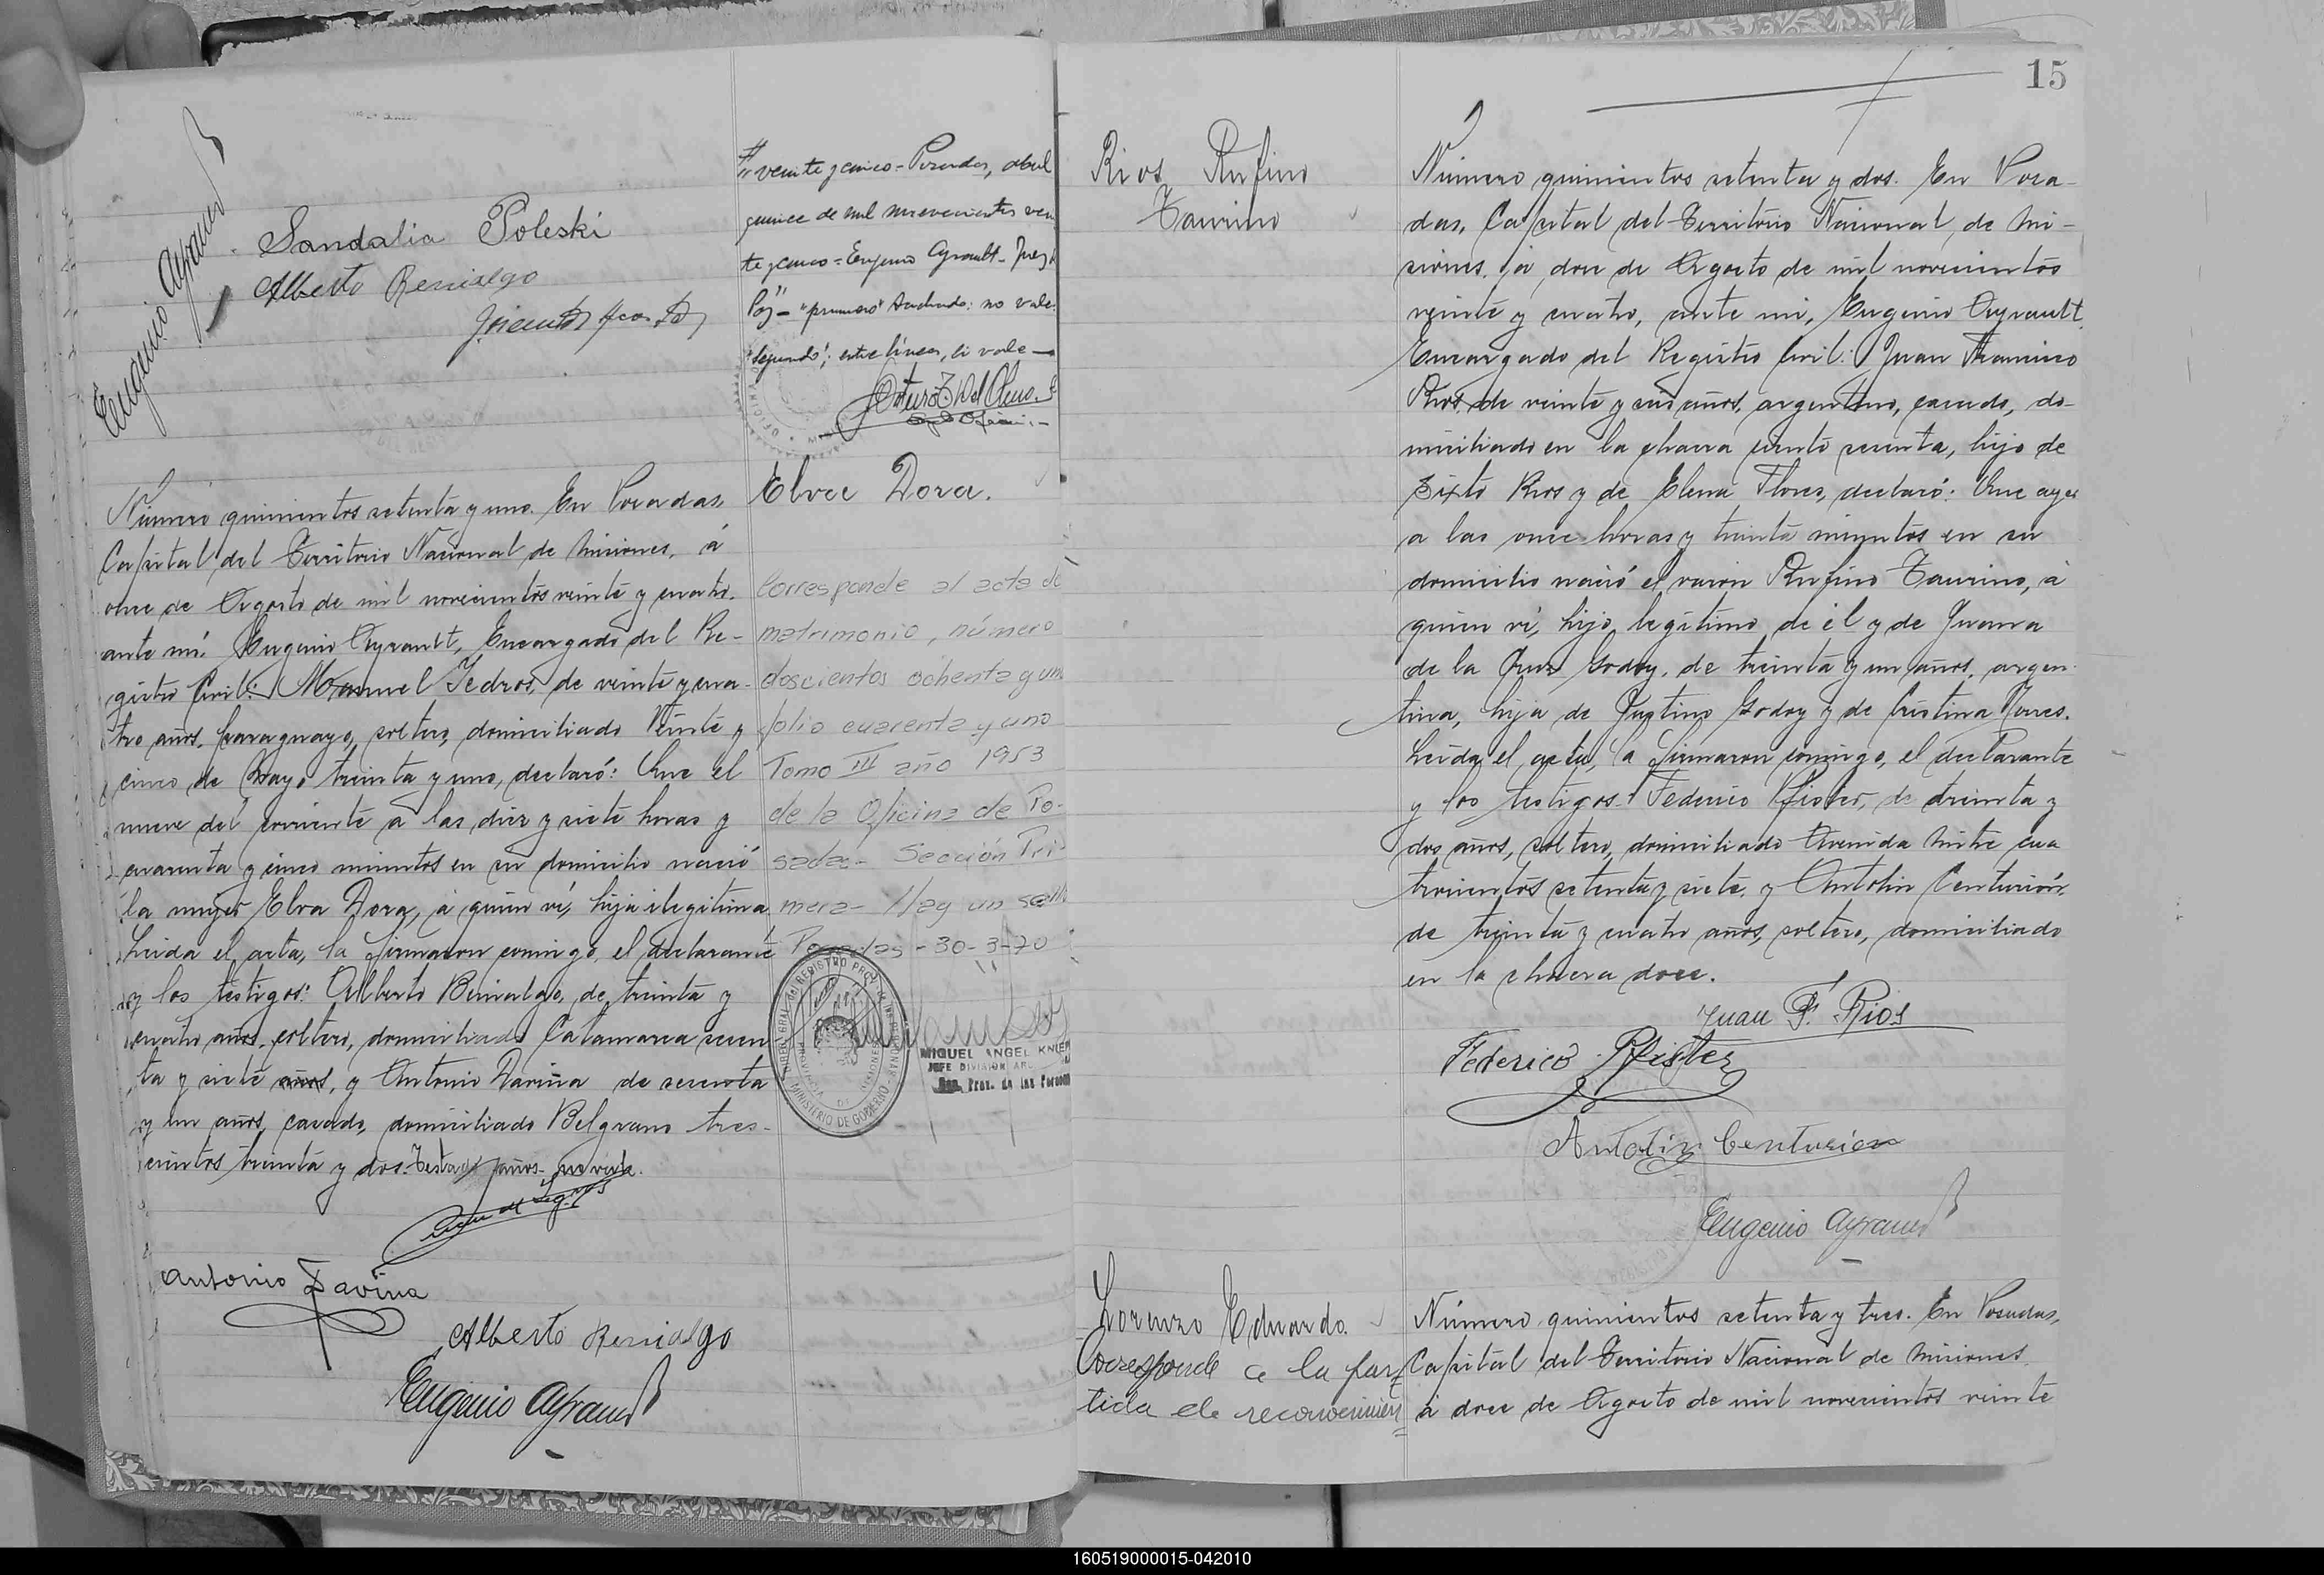 Eugenio Ayrault
Sandalia Poleski
Alberto Reniolgo
"veinte y cinco - Posadas, abril
quince de mil novecientos vein
te y cinco = Eugenio Ayrault - Juez de
Paz" - "primero" tachado: no vale:
"segundo"; entre líneas, si vale -
Número quinientos setenta y uno. En Posadas,
Capital del Territorio Nacional de Misiones, á
once de Agosto de mil novecientos veinte y cuatro.
ante mí: Eugenio Ayrault, Encargado del Re-
gistro Civil: Manuel Tedros, de veinte y cua-
tro años, paraguayo, soltero, domiciliado Veinte y
cinco de Mayo treinta y uno, declaró: Que el
nueve del corriente á las diez y siete horas y
cuarenta y cinco minutos en su domicilio nació
la mujer Elva Dora, á quien ví, hija ilegítima
Leida el acta, la firmaron comigo, el declarante
y los testigos: Alberto Reniolgo, de treinta y
cuatro años, soltero, domiciliado Catamarca sesen
ta y siete años, y Antonio Daviña de sesenta
y un años, casado, domiciliado Belgrano tres-
cientos treinta y dos. Testado años - no vale.
Antonio Davina
Alberto Reniolgo
Eugenio Ayrault
Elva Dora.
Corresponde al acta de
matrimonio, número
doscientos ochenta y uno
folio cuarenta y uno
Tomo III año 1953
de la Oficina de Po-
sadas - Sección Pri-
mera - Hay un sello
Posadas - 30-3-70
MINISTERIO DE GOBIERNO
MIGUEL ANGEL
JEFE DIVISION
de las Personas
15
Rios Rufino
Taurino
Número quinientos setenta y dos. En Posa-
das, Capital del Territorio Nacional de Mi-
siones, á doce de Agosto de mil novecientos
veinte y cuatro, ante mi, Eugenio Ayrault,
Encargado del Registro Civil: Juan Francisco
Rios, de veinte y seis años, argentino, casado, do-
miciliado en la chacra ciento sesenta, hijo de
Sixto Rios y de Elena Flores, declaró: Que ayer
a las once horas y treinta minutos en su
domicilio nació el varón Rufino Taurino, á
quien ví, hijo legítimo de él y de Juana
de la Cruz Godoy, de treinta y un años, argen-
tina, hija de Justino Godoy y de Cristina
Leida el acta, la firmaron comigo, el declarante
y los testigos: Federico Pfister, de treinta y
dos años, soltero, domiciliado Avenida Mitre cua
trocientos setenta y siete, y Antolin Centurión,
de treinta y cuatro años, soltero, domiciliado
en la chacra doce.
Juan F. Rios
Federico Pfister
Antolin Centurion
Eugenio Ayrault
Lorenzo Eduardo.
Corresponde a la par-
tida de reconocimien
Número quinientos setenta y tres. En Posadas,
Capital del Territorio Nacional de Misiones
á doce de Agosto de mil novecientos veinte
160519000015-042010